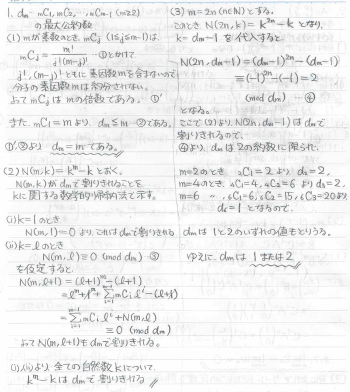 1. dm = mC1, mC2, … mCm-1 (m≧2)
の最大公約数
(1) mが素数のとき、mCj (1≦j≦m-1)は
mCj = m!/j!(m-j)! ①とかけて
j!, (m-j)!ともに素因数mを含まないので
分子の素因数mは約分されない。
よってmCjはmの倍数である。①'
また、mC1=mより、dm≦m …②である。
①',②より dm=mである。
(2) N(m,k)=k^m-kとおく。
N(m,k)がdmで割りきれることを
kに関する数学的帰納法で示す。
(i) k=1のとき
N(m,1)=0より、これはdmで割りきれる
(ii) k=lのとき
N(m,l)≡0 (mod dm) …③
を仮定すると
N(m,l+1)=(l+1)^m-(l+1)
=l^m+1^m+Σ[i=1,m-1] mCi l^i-(l+1)
=Σ[i=1,m-1] mCi l^i+N(m,l)
≡0 (mod dm)
よってN(m,l+1)もdmで割りきれる。
(i)(ii)より、全ての自然数kについて
k^m-kはdmで割りきれる
(3) m=2n (n∈N)とする。
このときN(2n,k)=k^2n-kとなり、
k=dm-1を代入すると
N(2n,dm-1)=(dm-1)^2n-(dm-1)
≡(-1)^2n-(-1)=2
(mod dm) …④
となる。
ここで(2)よりN(2n,dm-1)はdmで
割りきれるので、
④より、dmは2の約数に限られ、
m=2のとき、2C1=2よりd2=2,
m=4のとき、4C1=4, 4C2=6よりd4=2,
m=6 〃 、6C1=6, 6C2=15, 6C3=20より
d6=1となるので、
dmは1と2のいずれの値をとりうる。
ゆえにdmは1または2